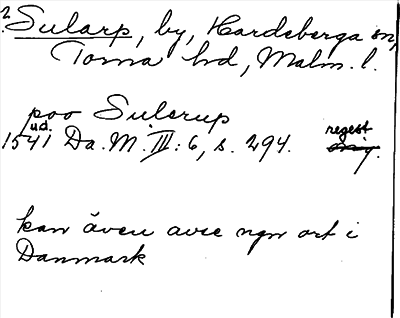 ? Sularp, by, Hardeberga sn,
Torna hd, Malm. l.
poo Sulerup
ud.
1541 Da. M. III: 6, s. 294. regest
kan även avse ngn ort i
Danmark